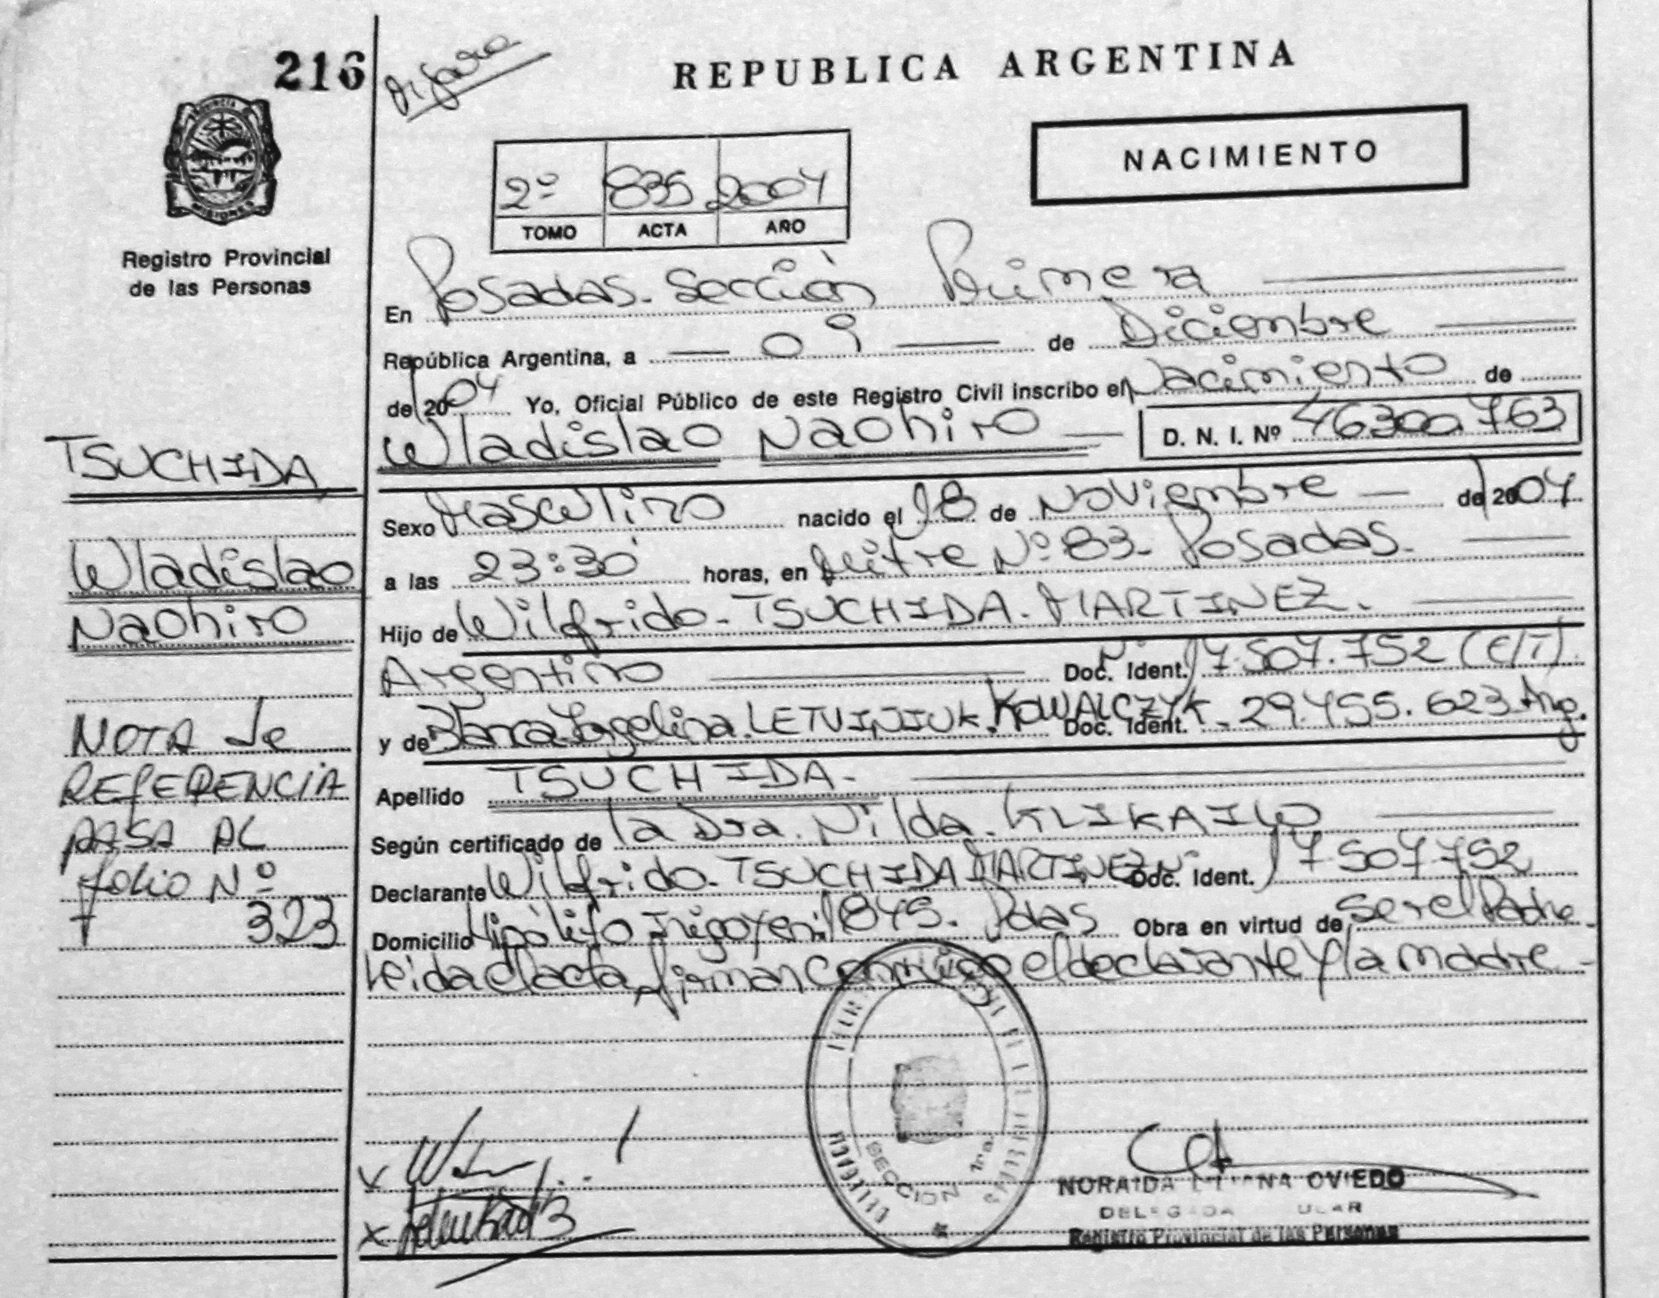 216
REPUBLICA ARGENTINA
NACIMIENTO
PROVINCIA
MISIONES
Registro Provincial
de las Personas
2º 835 2004
TOMO ACTA AÑO
En Posadas. Sección Primera
República Argentina, a 09 de Diciembre
de 2004 Yo, Oficial Público de este Registro Civil inscribo el Nacimiento de
Wladislao Naohiro D. N. I. Nº 46.300.763
TSUCHIDA
Wladislao
Naohiro
Sexo Masculino nacido el 18 de Noviembre de 2004
a las 23:30 horas, en Mitre Nº 83. Posadas.
Hijo de Wilfrido. TSUCHIDA. MARTINEZ.
Argentino Doc. Ident. 17.507.752 (E/T)
y de Blanca LETVINIUK. KOWALCZYK Doc. Ident. 29.455.623 Arg.
Apellido TSUCHIDA.
Según certificado de la Dra. Nilda. KLIKAILO
Declarante Wilfrido. TSUCHIDA MARTINEZ Doc. Ident. 17.507.752
Domicilio Hipólito Irigoyen 1845. Pdas Obra en virtud de ser el Padre
Leida el acta, firman conmigo el declarante y la madre
NOTA de
REFERENCIA
PASA AL
folio Nº
323
SECCION 1ra.
NORAIDA OVIEDO
DELEGADA
Registro Provincial de las Personas